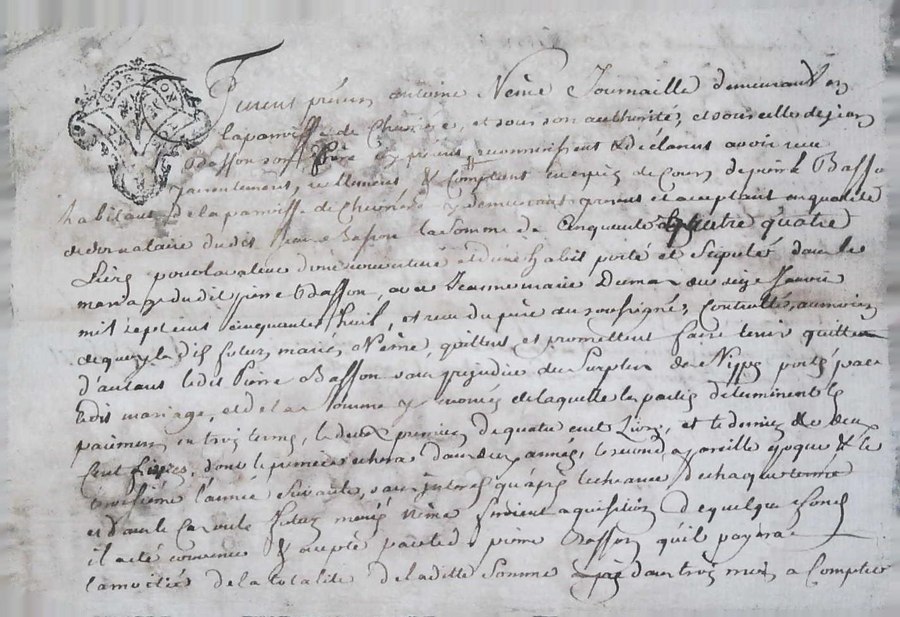 G. DE LYON
Furent présens antoine Nême Journaille demeurant en
laparoisse de Chevriere, et sous son authorité, et sous celle de jean
Basson son Père
 reconnoissent & déclarent avoir reçu
 réellement & Comptant en espèces de Cours de pierre Basso
habitant de laparoisse de Chevriere y demeurant présent et acceptant en qualité
de donataire dudit Pierre Basson la Somme de Cinquante quatre
Livres pour la valeur d'une couverture et d'une habit porté et Stipulé dans le
mariage dudit pierre Basson, avec Jeanne marie Dumas du seize Janvier
mil sept cent cinquante huit, et reçu du père du soussigné, Controllé,
 futurs mariés Nême, quittent et promettent faire tenir quitte
d'autant ledit Pierre Basson sans préjudice du Surplus de Nippes portés par
ledit mariage, et de la Somme de laquelle les parties déterminent le
paiement en trois termes, le deux premiers de quatre cent Livres, et le dernier de deux
Cent Livres, dont le premier echera dans deux années, le second a pareille epoque & le
troisième l'année Suivante, sans interes qu'après l'echeance de chaque terme
et dans le Cas ou le futurs mariés Nême fissent aquisition de quelque fonds
il a été convenu & accepté par ledit pierre Basson qu'il payera
la moitié de la totalité de la ditte Somme dans trois mois a Compter